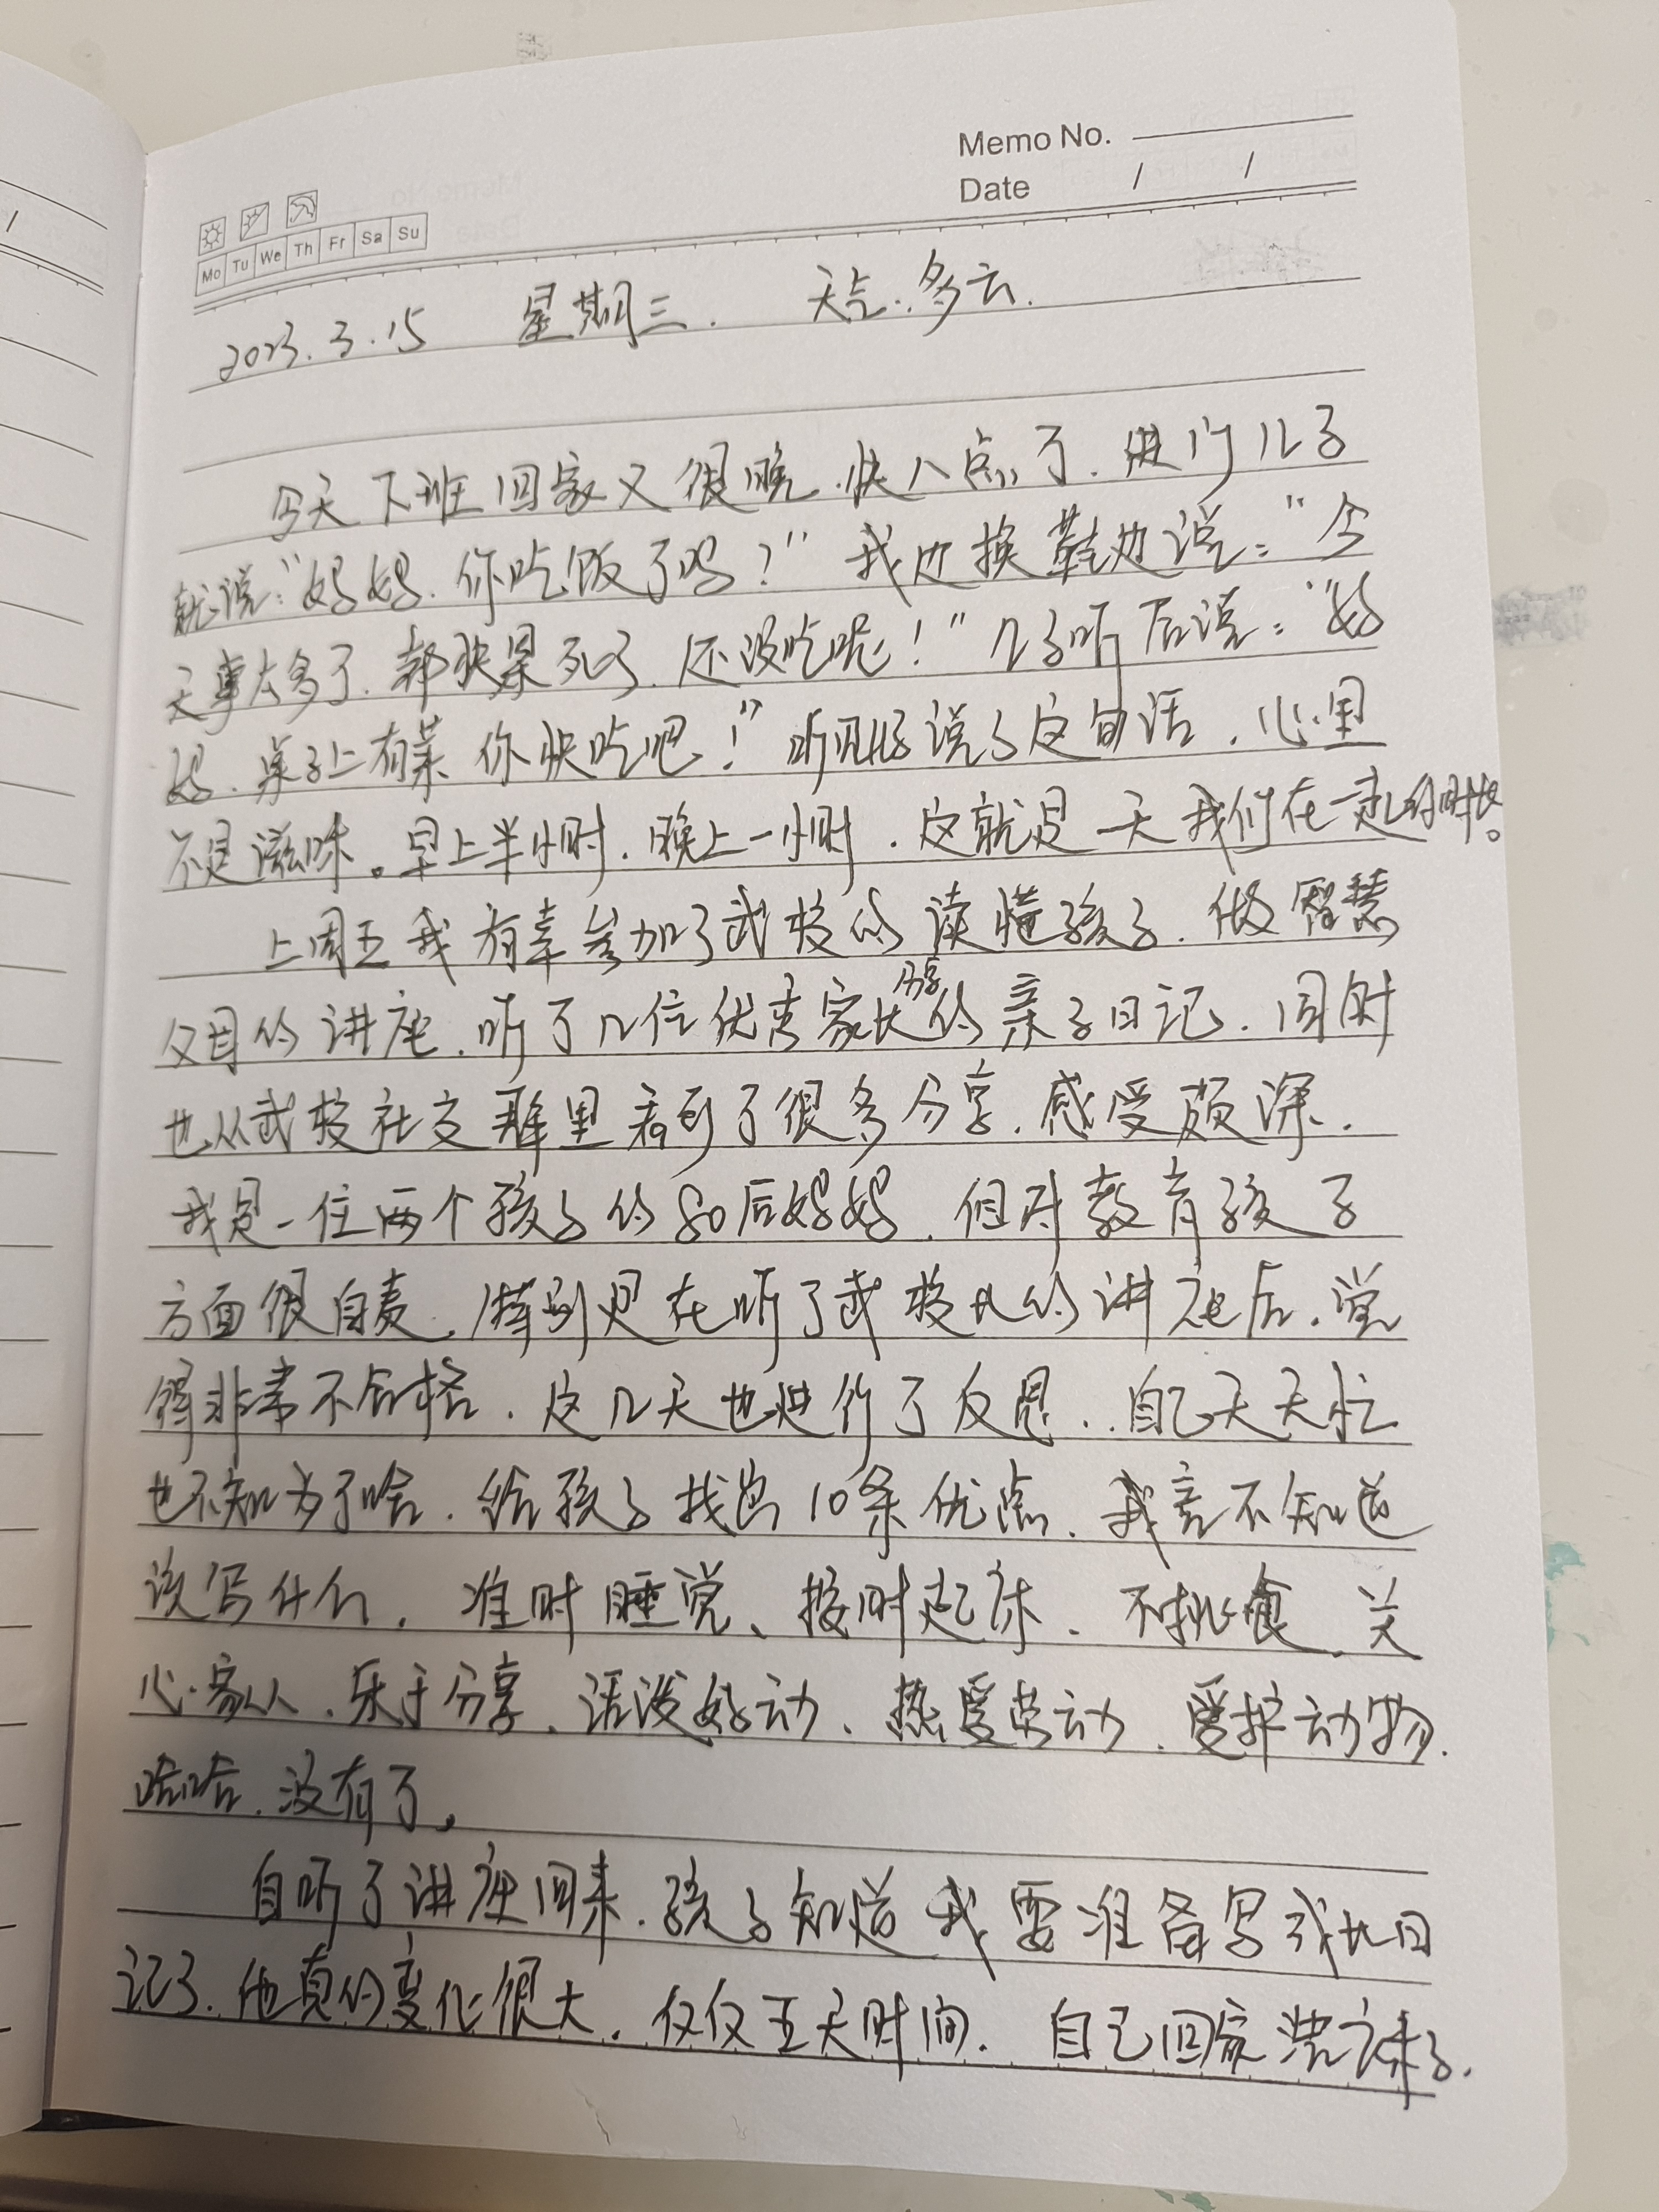 Memo No.
Date / /
Mo Tu We Th Fr Sa Su
2023.3.15 星期三. 天气:多云.
今天下班回家又很晚,快八点了.进门儿子
就说:"妈妈.你吃饭了吗?"我边换鞋边说:"今
天事太多了.都快累死了.还没吃呢!"儿子听后说:"妈
妈.桌子上有菜你快吃吧!"听见儿子说了这句话,心里
不是滋味。早上半小时.晚上一小时.这就是一天我们在一起的时长。
上周五我有幸参加了武校的读懂孩子.做智慧
父母的讲座.听了几位优秀家长分享的亲子日记.同时
也从武校社交群里看到了很多分享.感受颇深.
我是一位两个孩子的80后妈妈.但对教育孩子
方面很自责.特别是在听了武校长的讲座后.觉
得非常不合格.这几天也进行了反思..自己天天忙
也不知为了啥.给孩子找出10条优点.我竟不知道
该写什么.准时睡觉、按时起床.不挑食.关
心家人.乐于分享.活泼好动、热爱劳动.爱护动物.
哈哈.没有了。
自听了讲座回来.孩子知道我要准备写成长日
记了.他真的变化很大.仅仅五天时间.自己回家